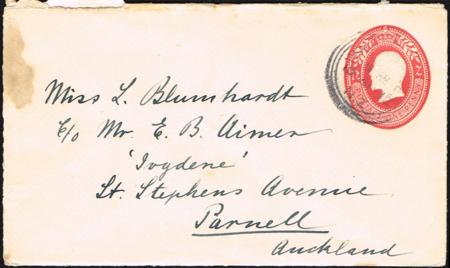 Miss L. Blumhardt
C/o Mr. E. B. Aimer
'Ivydene'
St. Stephens Avenue
Parnell
Auckland